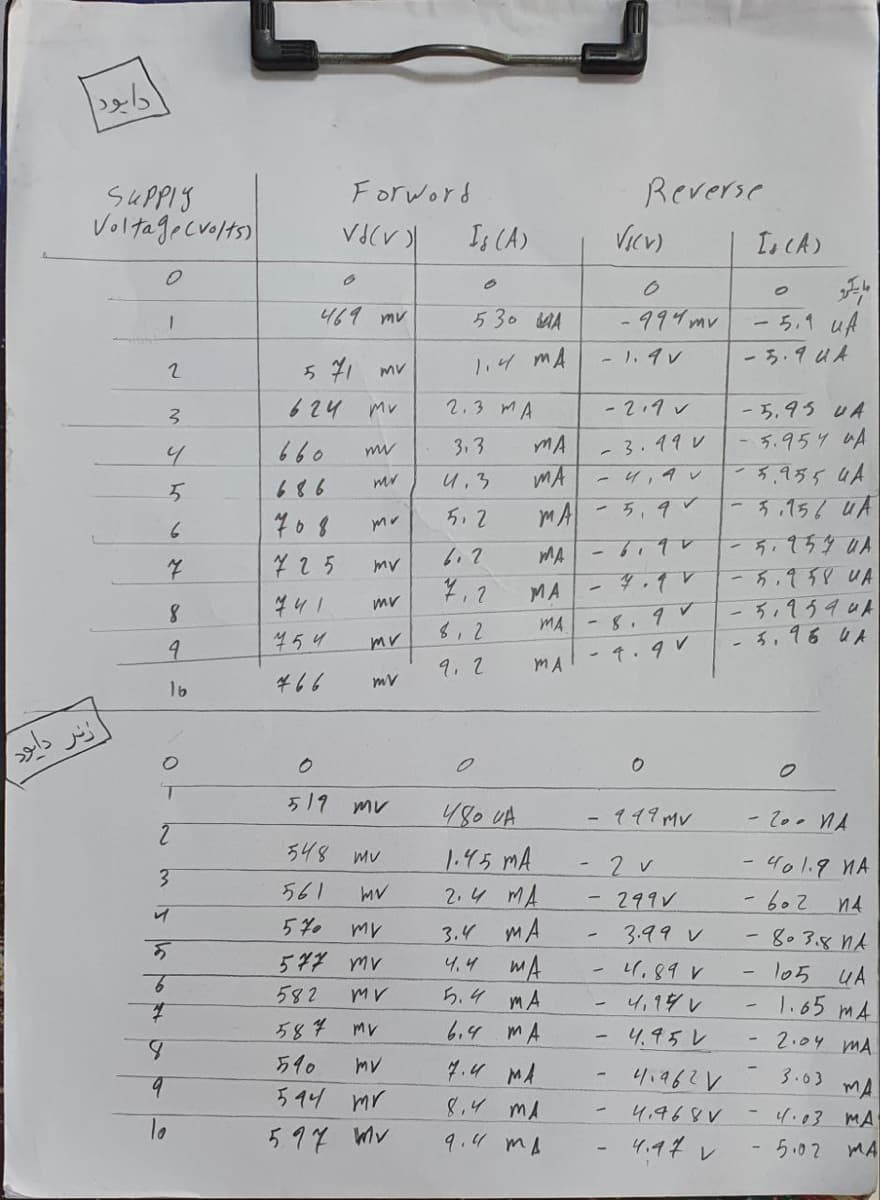 دایود
Supply Forword Reverse
Voltage(volts) Vd(v) Is(A) Vs(v) Is(A)
0 0 0 0 0
1 469 mv 530 uA -994mv -5.9 uA
2 571 mv 1.4 mA -1.9v -5.9 uA
3 624 mv 2.3 mA -2.9 v -5.95 uA
4 660 mv 3.3 mA -3.99 v -5.954 uA
5 686 mv 4.3 mA -4.9 v -5.955 uA
6 708 mv 5.2 mA -5.9 v -5.956 uA
7 725 mv 6.2 mA -6.9 v -5.957 uA
8 741 mv 7.2 mA -7.9 v -5.958 uA
9 754 mv 8.2 mA -8.9 v -5.959 uA
10 766 mv 9.2 mA -9.9 v -5.96 uA
زنر دایود
0 0 0 0 0
1 519 mv 480 uA -999mv -200 nA
2 548 mv 1.45 mA -2 v -401.9 nA
3 561 mv 2.4 mA -299v -602 nA
4 570 mv 3.4 mA -3.99 v -803.8 nA
5 577 mv 4.4 mA -4.89 v -105 uA
6 582 mv 5.4 mA -4.94 v -1.05 mA
7 587 mv 6.4 mA -4.95 v -2.04 mA
8 590 mv 7.4 mA -4.962v -3.03 mA
9 594 mv 8.4 mA -4.968v -4.03 mA
10 597 mv 9.4 mA -4.97 v -5.02 mA